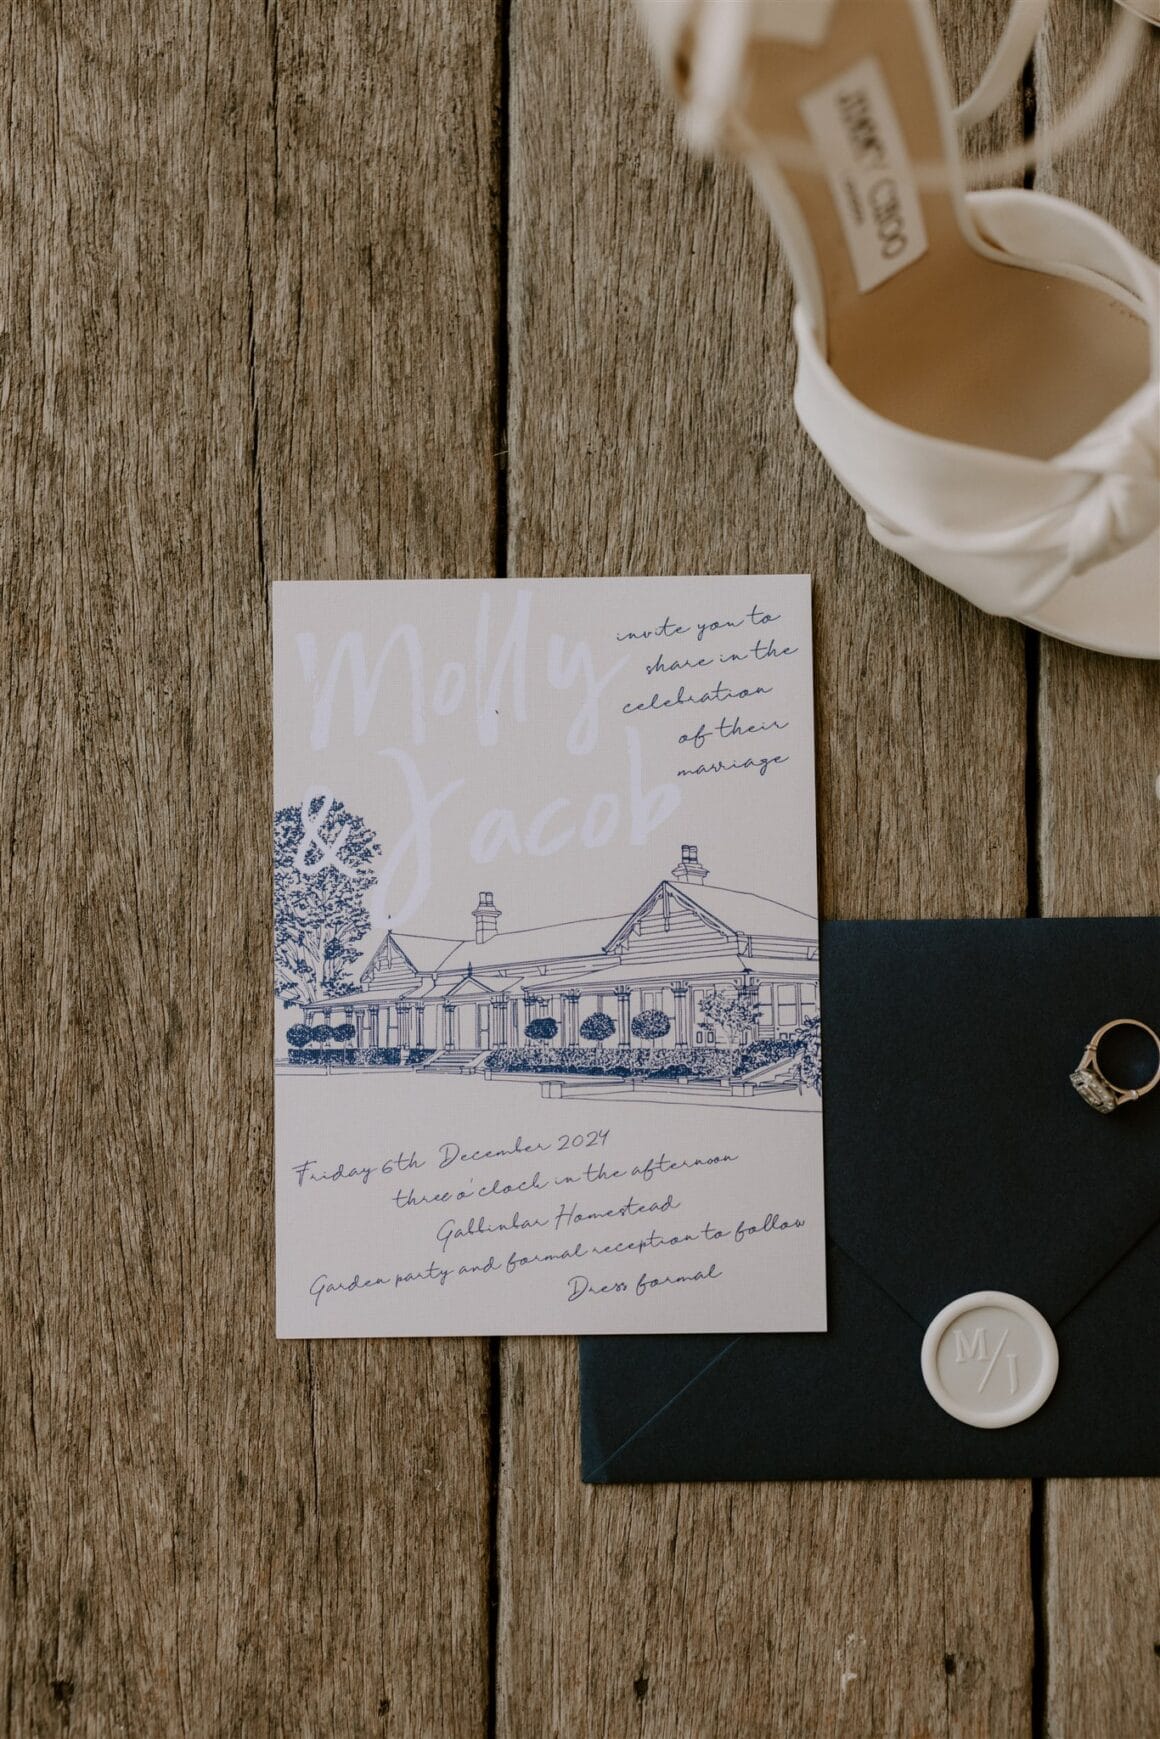 JIMMY CHOO
Molly
& Jacob
invite you to
share in the
celebration
of their
marriage
Friday 6th December 2024
three o'clock in the afternoon
Gabbinbar Homestead
Garden party and formal reception to follow
Dress formal
M/J